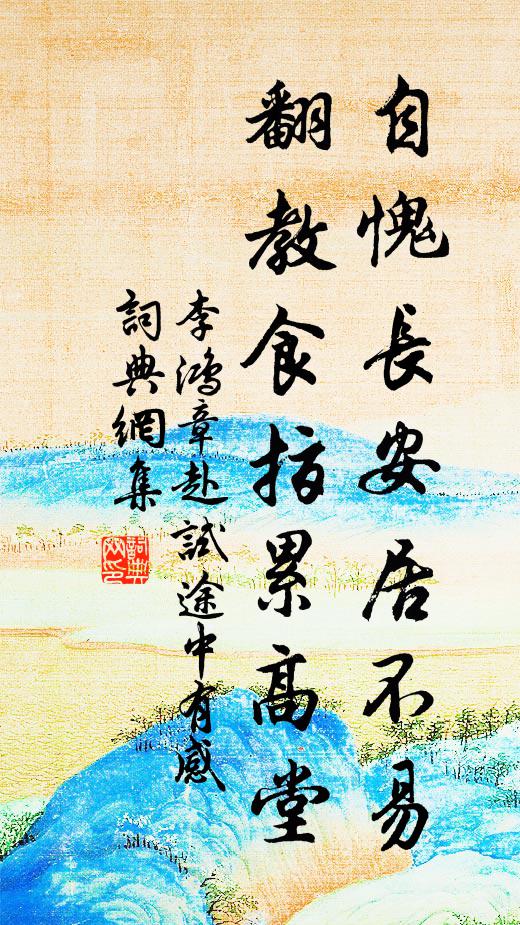 自愧長安居不易
翻教食指累高堂
李鴻章赴試途中有感
詞典網集
詞典網印